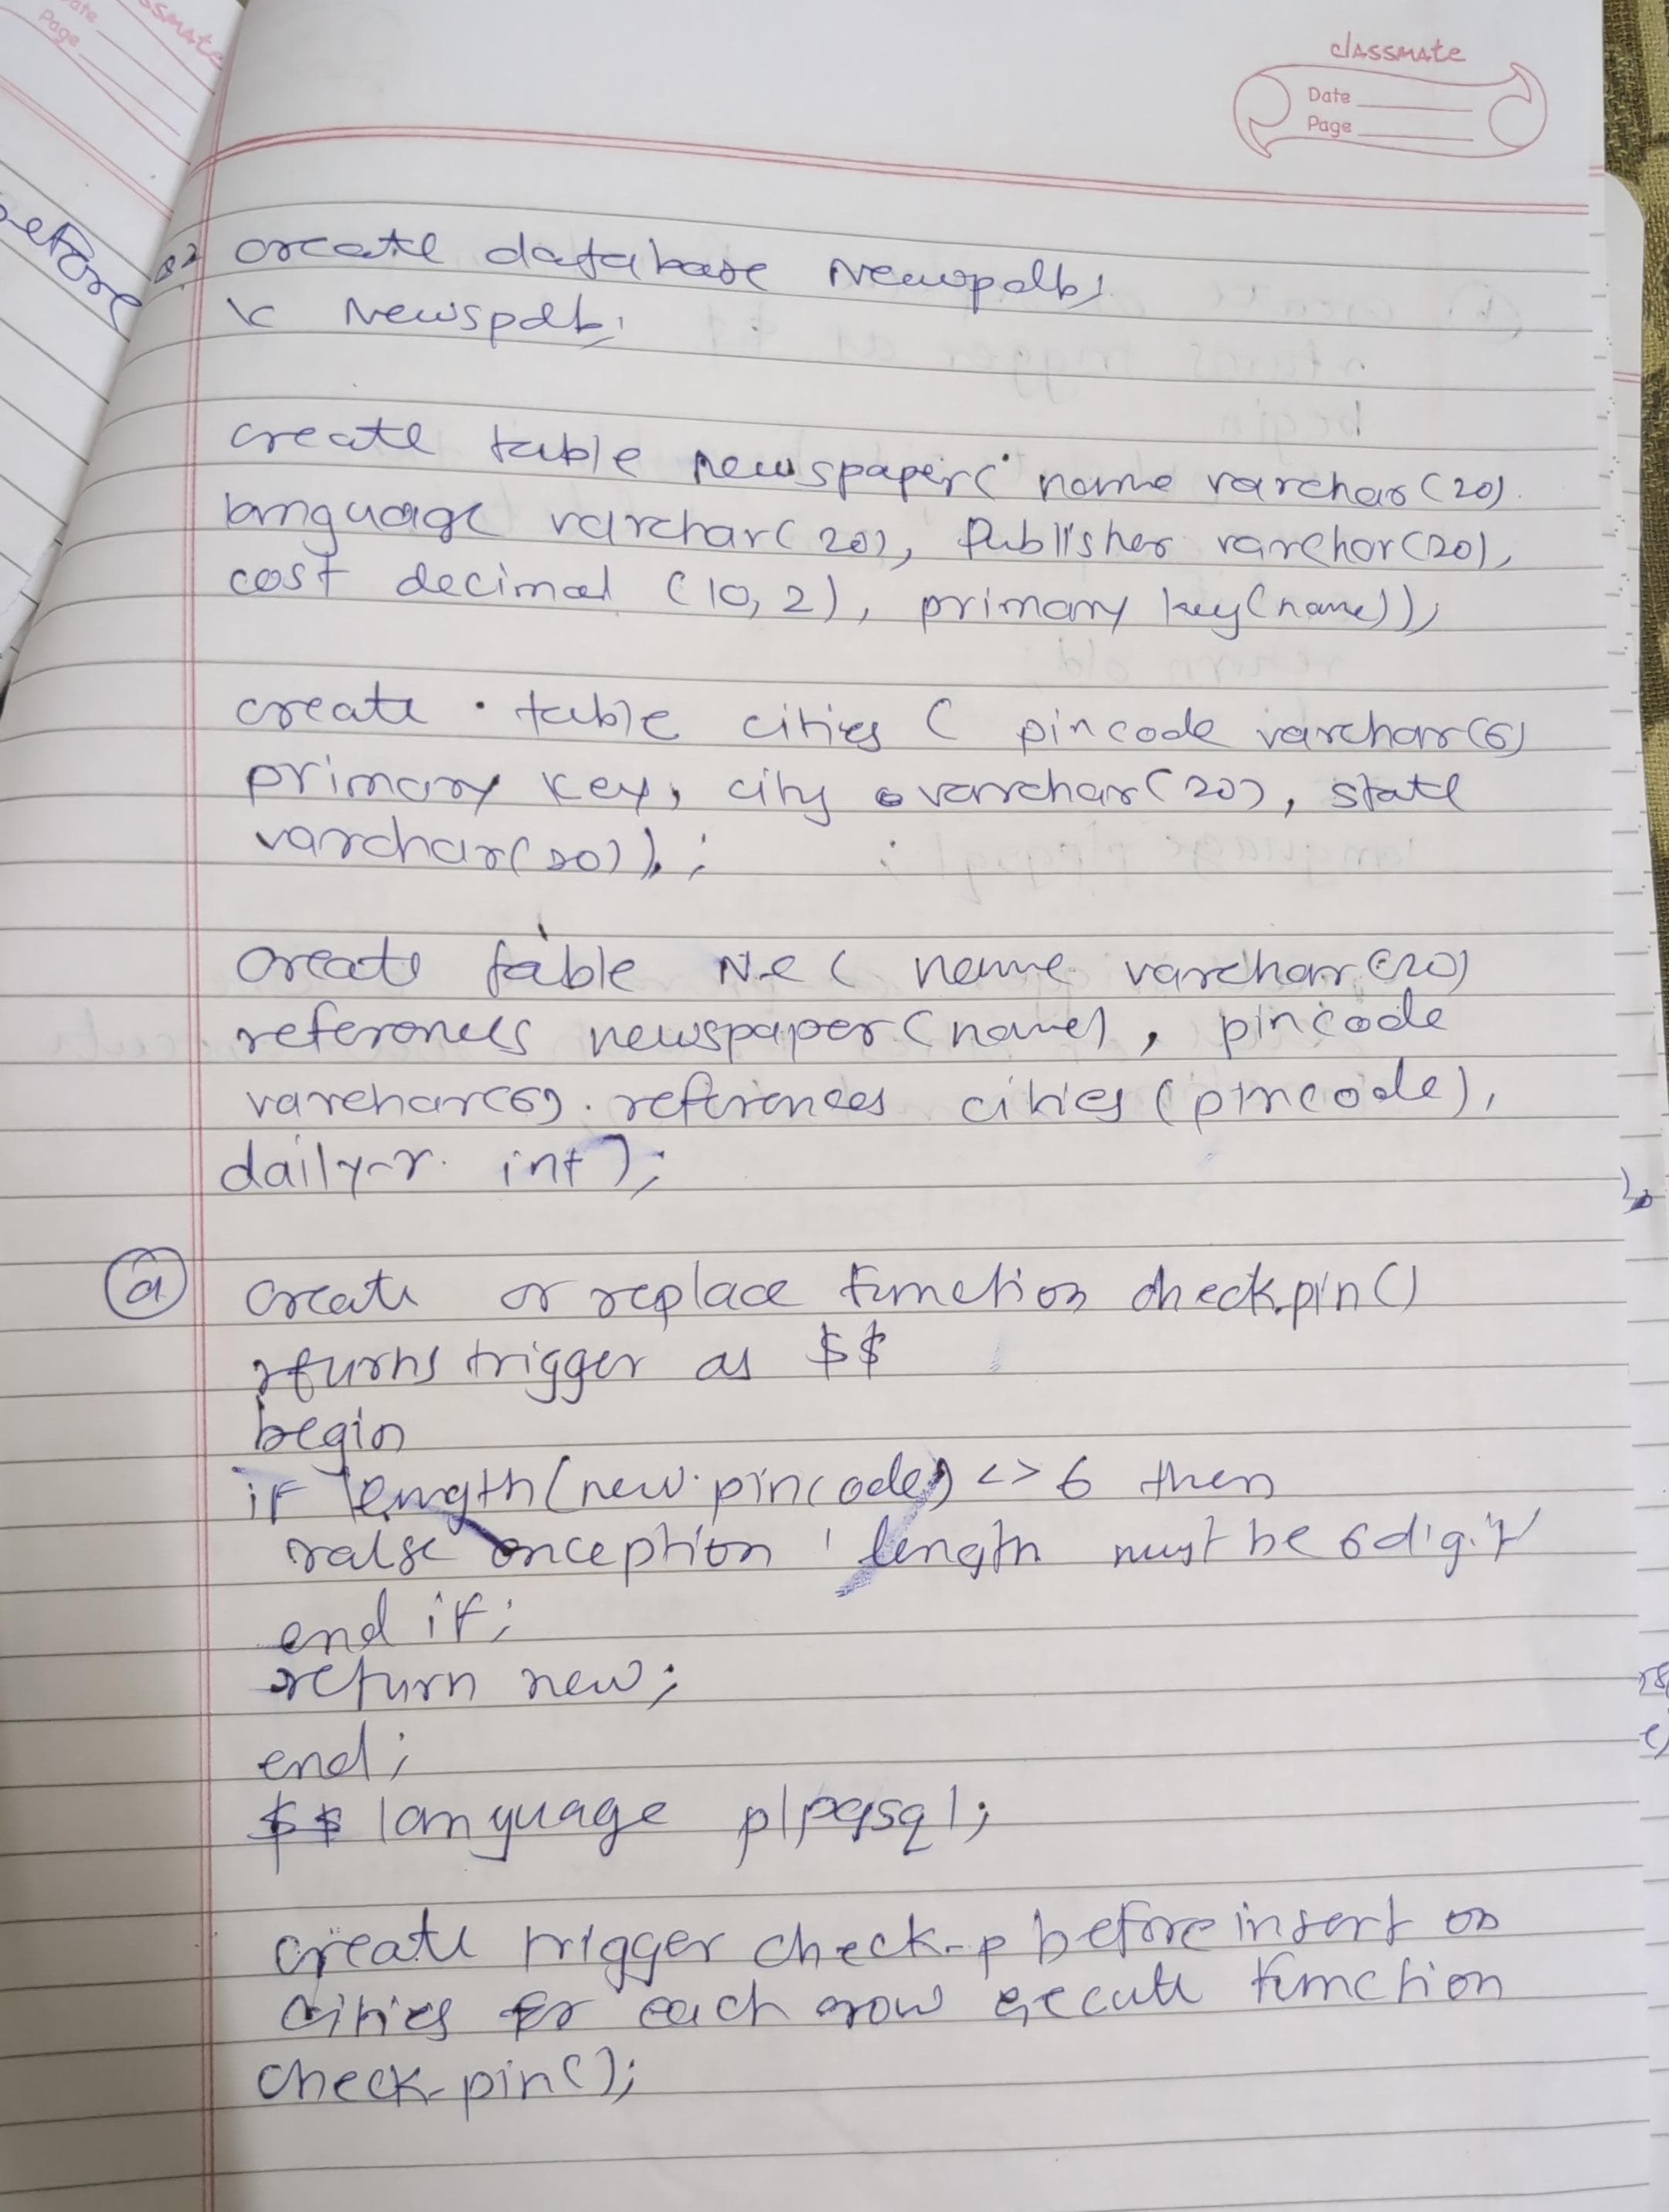 classmate
Date
Page
before
Q2 create database Newspdb;
\c Newspdb;
create table newspaper( name varchar(20)
language varchar(20), Publisher varchar(20),
cost decimal (10,2), primary key(name));
create table cities ( pincode varchar(6)
primary key, city varchar(20), state
varchar(20));
create table N.C ( name varchar(20)
references newspaper(name), pincode
varchar(6) references cities (pincode),
daily-r int);
a create or replace function check-pin()
returns trigger as $$
begin
if length(new.pincode) <> 6 then
raise exception ' length must be 6 digit
end if;
return new;
end;
$$ language plpgsql;
create trigger check-p before insert on
cities for each row execute function
check-pin();